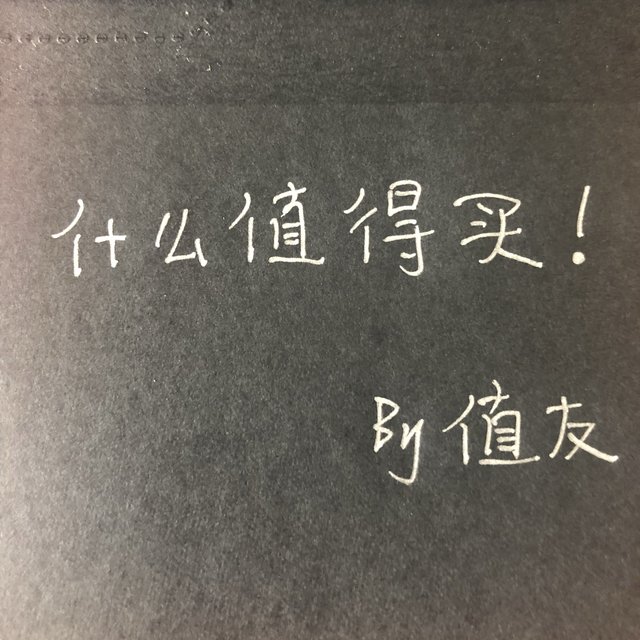 什么值得买！
By 值友